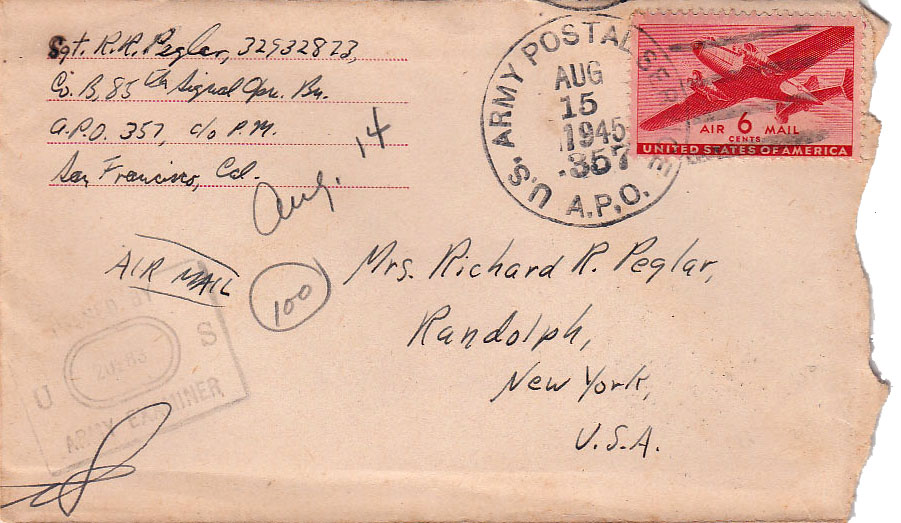 Sgt. R.R. Peglar, 32932823,
Co. B, 85th Signal Opr. Bn.
A.P.O. 357, c/o P.M.
San Francisco, Cal.
Aug. 14
U.S. ARMY POSTAL SERVICE
AUG
15
1945
357
A.P.O.
AIR 6 MAIL
CENTS
UNITED STATES OF AMERICA
AIR MAIL
100
Mrs. Richard R. Peglar,
Randolph,
New York,
U.S.A.
BY
U S
ARMY EXAMINER